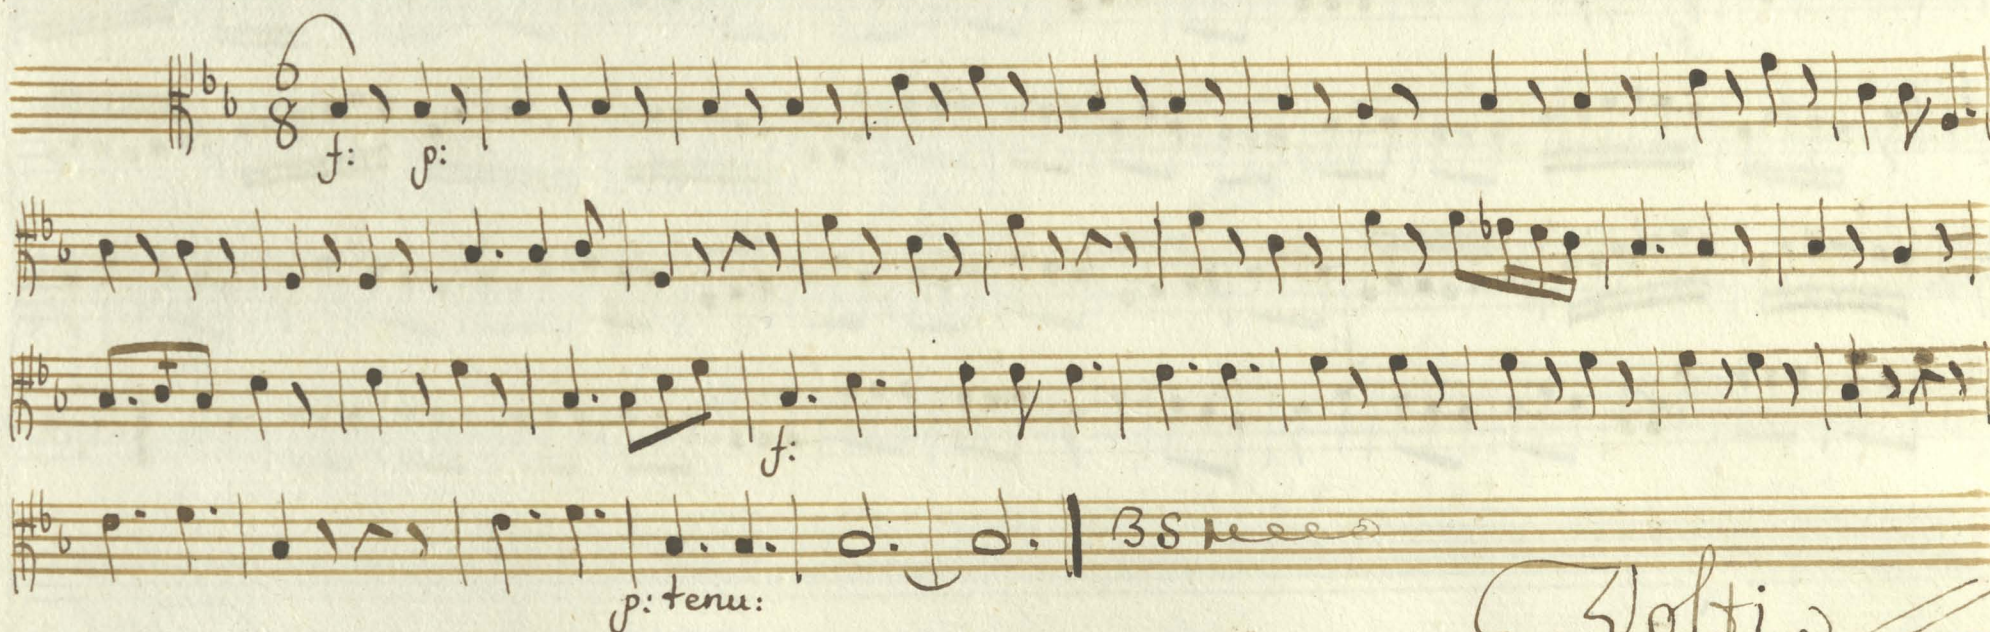 6
8
f: p:
f:
p: tenu:
Volti